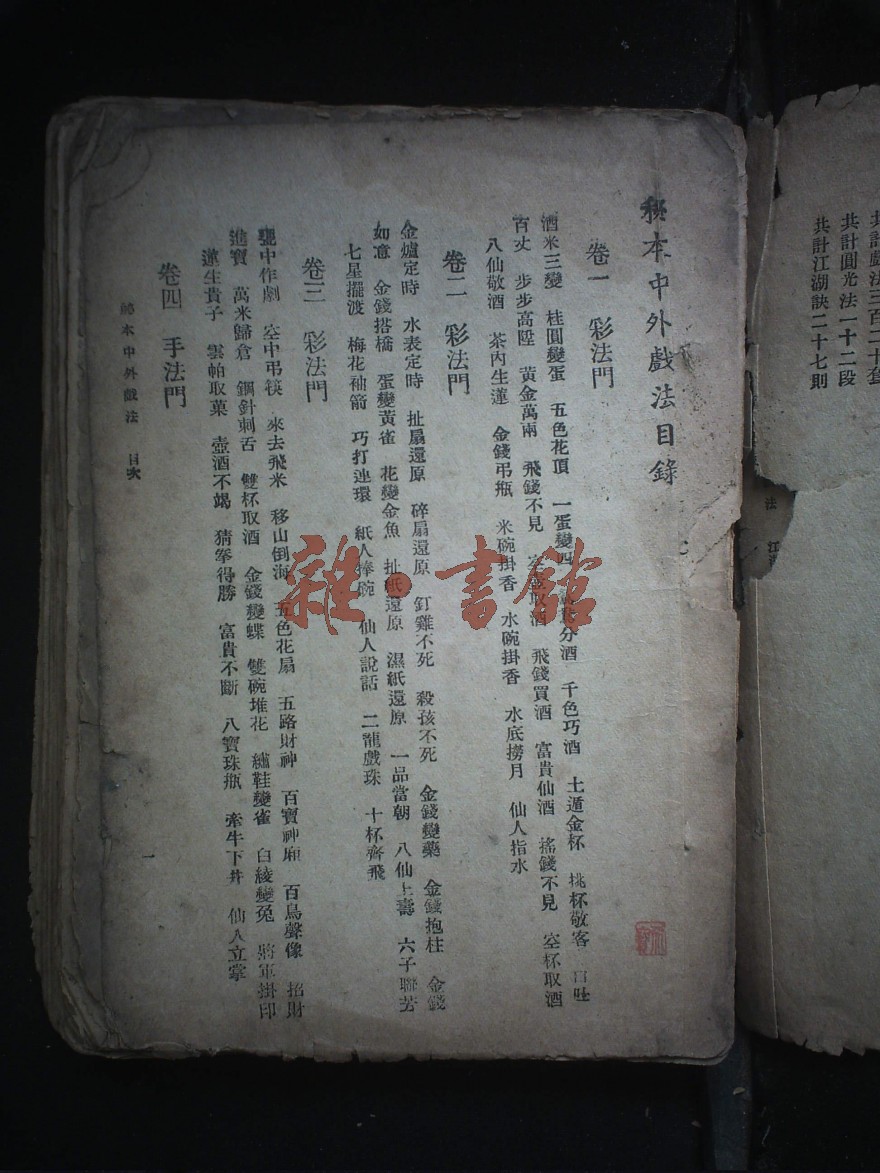 共計戲法三百二十套
共計圓光法一十二段
共計江湖訣二十七則
法 江
秘本中外戲法目錄
卷一 彩法門
酒米三變 桂圓變蛋 五色花頂 一蛋變四 分酒 千色巧酒 土遁金杯 挑杯敬客 口吐
百丈 步步高陞 黃金萬兩 飛錢不見 空壺取酒 飛錢買酒 富貴仙酒 搖錢不見 空杯取酒
八仙敬酒 茶內生蓮 金錢弔瓶 米碗掛香 水碗掛香 水底撈月 仙人指水
卷二 彩法門
金爐定時 水表定時 扯扇還原 碎扇還原 釘雞不死 殺孩不死 金錢變藥 金錢抱柱 金錢
如意 金錢搭橋 蛋變黃雀 花變金魚 扯紙還原 濕紙還原 一品當朝 八仙上壽 六子聯芳
七星擺渡 梅花袖箭 巧打連環 紙人捧碗 仙人說話 二龍戲珠 十杯齊飛
卷三 彩法門
甕中作劇 空中弔筷 來去飛米 移山倒海 五色花扇 五路財神 百寶神廂 百鳥聲像 招財
進寶 萬米歸倉 鋼針刺舌 雙杯取酒 金錢變蝶 雙碗堆花 繡鞋變雀 白綾變兔 將軍掛印
蓮生貴子 雲帕取菓 壺酒不竭 猜拳得勝 富貴不斷 八寶珠瓶 牽牛下井 仙人立掌
卷四 手法門
秘本中外戲法 目次
一
雜·書館